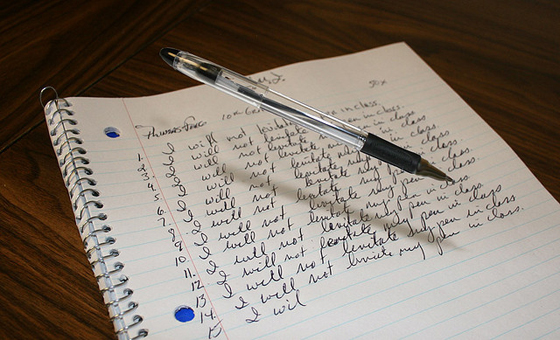 Thomas
50x
1. I will not levitate in class.
2. I will not levitate my pen in class.
3. I will not levitate my pen in class.
4. I will not levitate my pen in class
5. I will not levitate my pen in class.
6. I will not levitate my pen in class.
7. I will not levitate my pen in class.
8. I will not levitate my pen in class.
9. I will not levitate my pen in class
10. I will not levitate my pen in class
11. I will not levitate my pen in class
12. I will not levitate my pen in class.
13. I will not levitate my pen in class
14. I will not my pen in class.
15 I wil